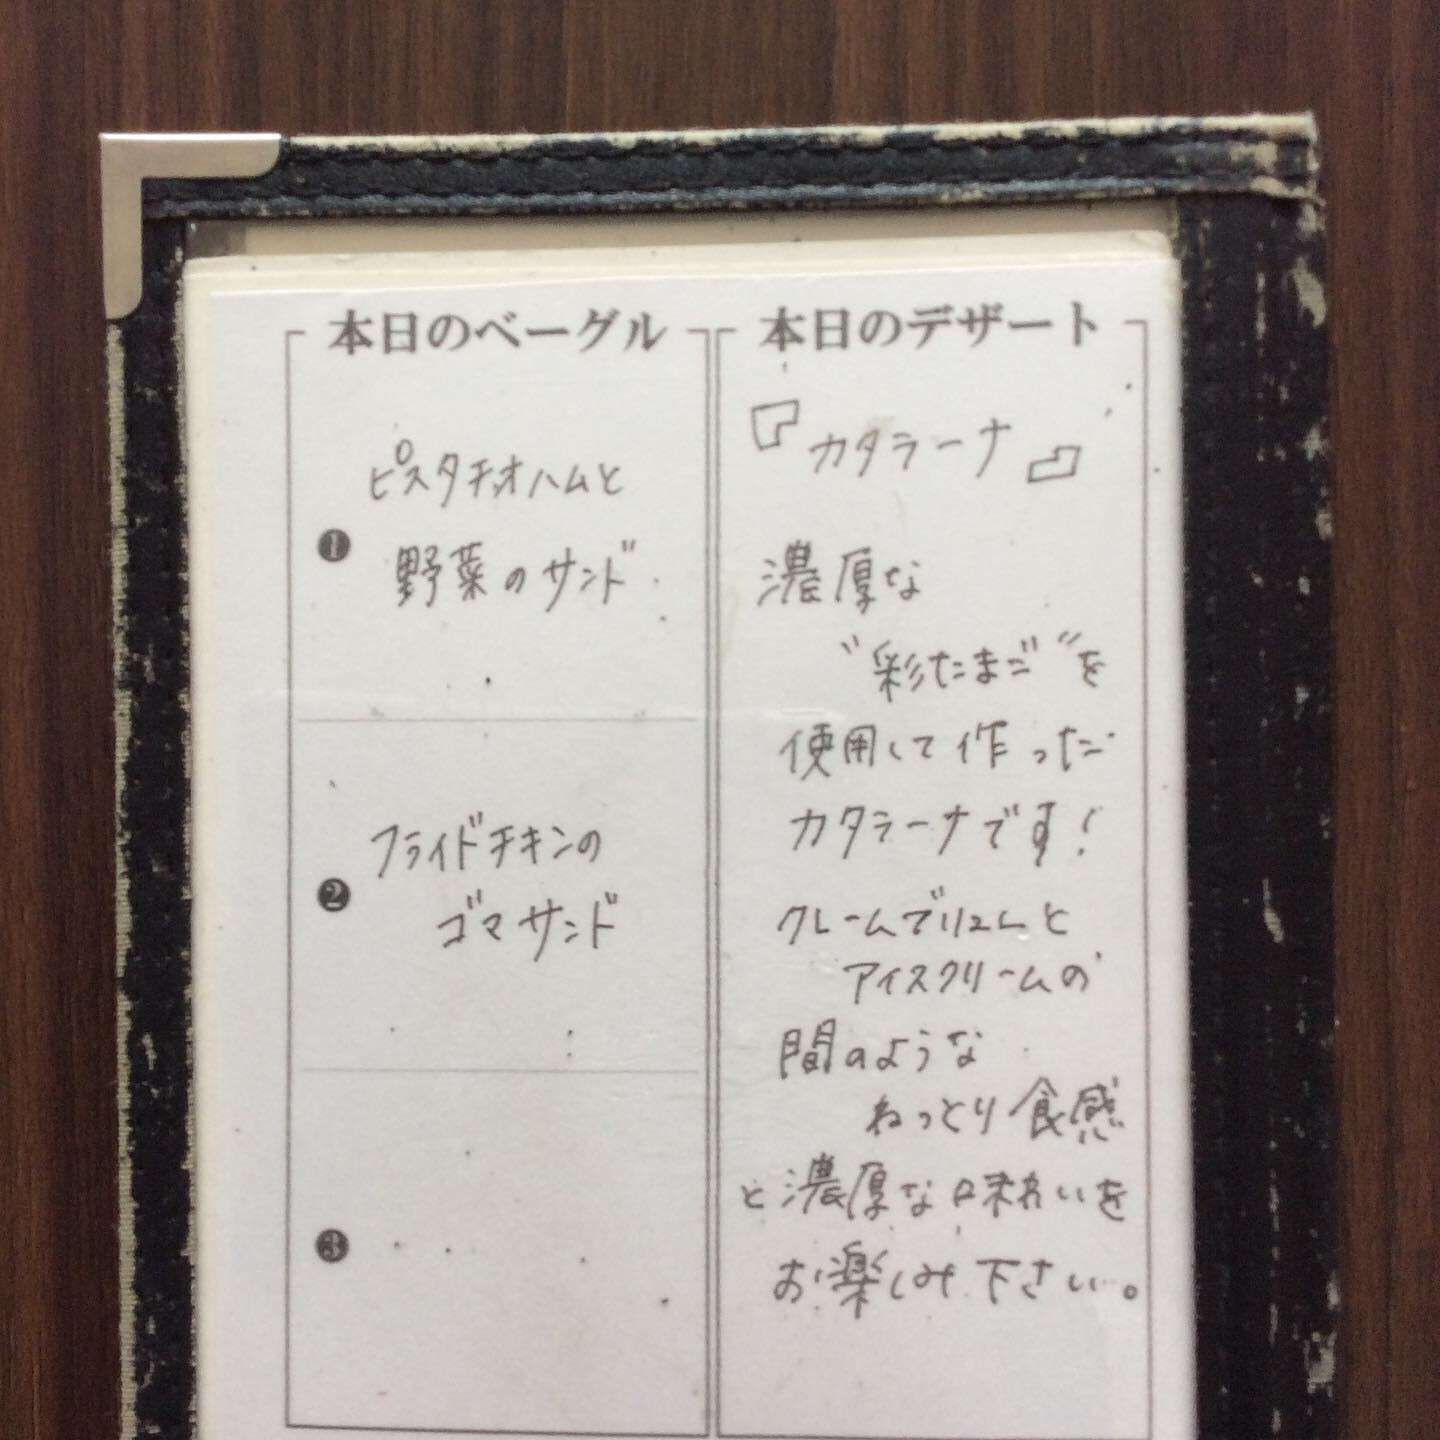 本日のベーグル
❶
ピスタチオハムと
野菜のサンド
❷
フライドチキンの
ゴマサンド
❸
本日のデザート
『カタラーナ』
濃厚な
"彩たまご"を
使用して作った
カタラーナです!
クレームブリュレと
アイスクリームの
間のような
ねっとり食感
と濃厚な味わいを
お楽しみ下さい。